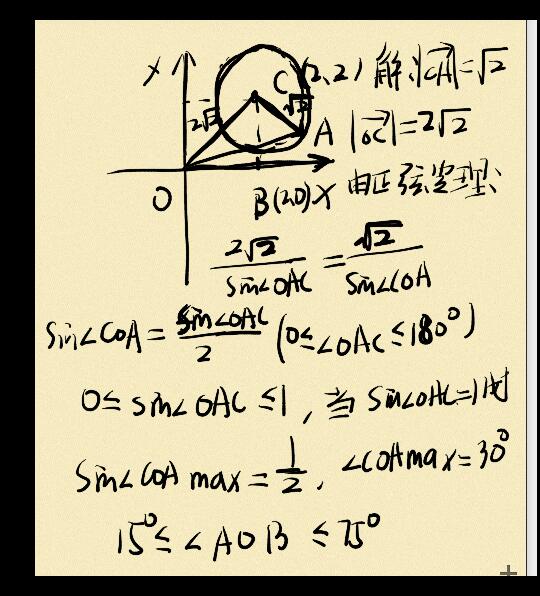 Y
C (2,2) 解:|CA|=√2
2√2 √2
A |OC|=2√2
O B(2,0) X 由正弦定理:
2√2/sin∠OAC = √2/sin∠COA
sin∠COA = sin∠OAC/2 (0≤∠OAC≤180°)
0≤ sin∠OAC ≤1, 当 sin∠OAC=1时
sin∠COA max = 1/2, ∠COAmax=30°
15°≤ ∠AOB ≤75°